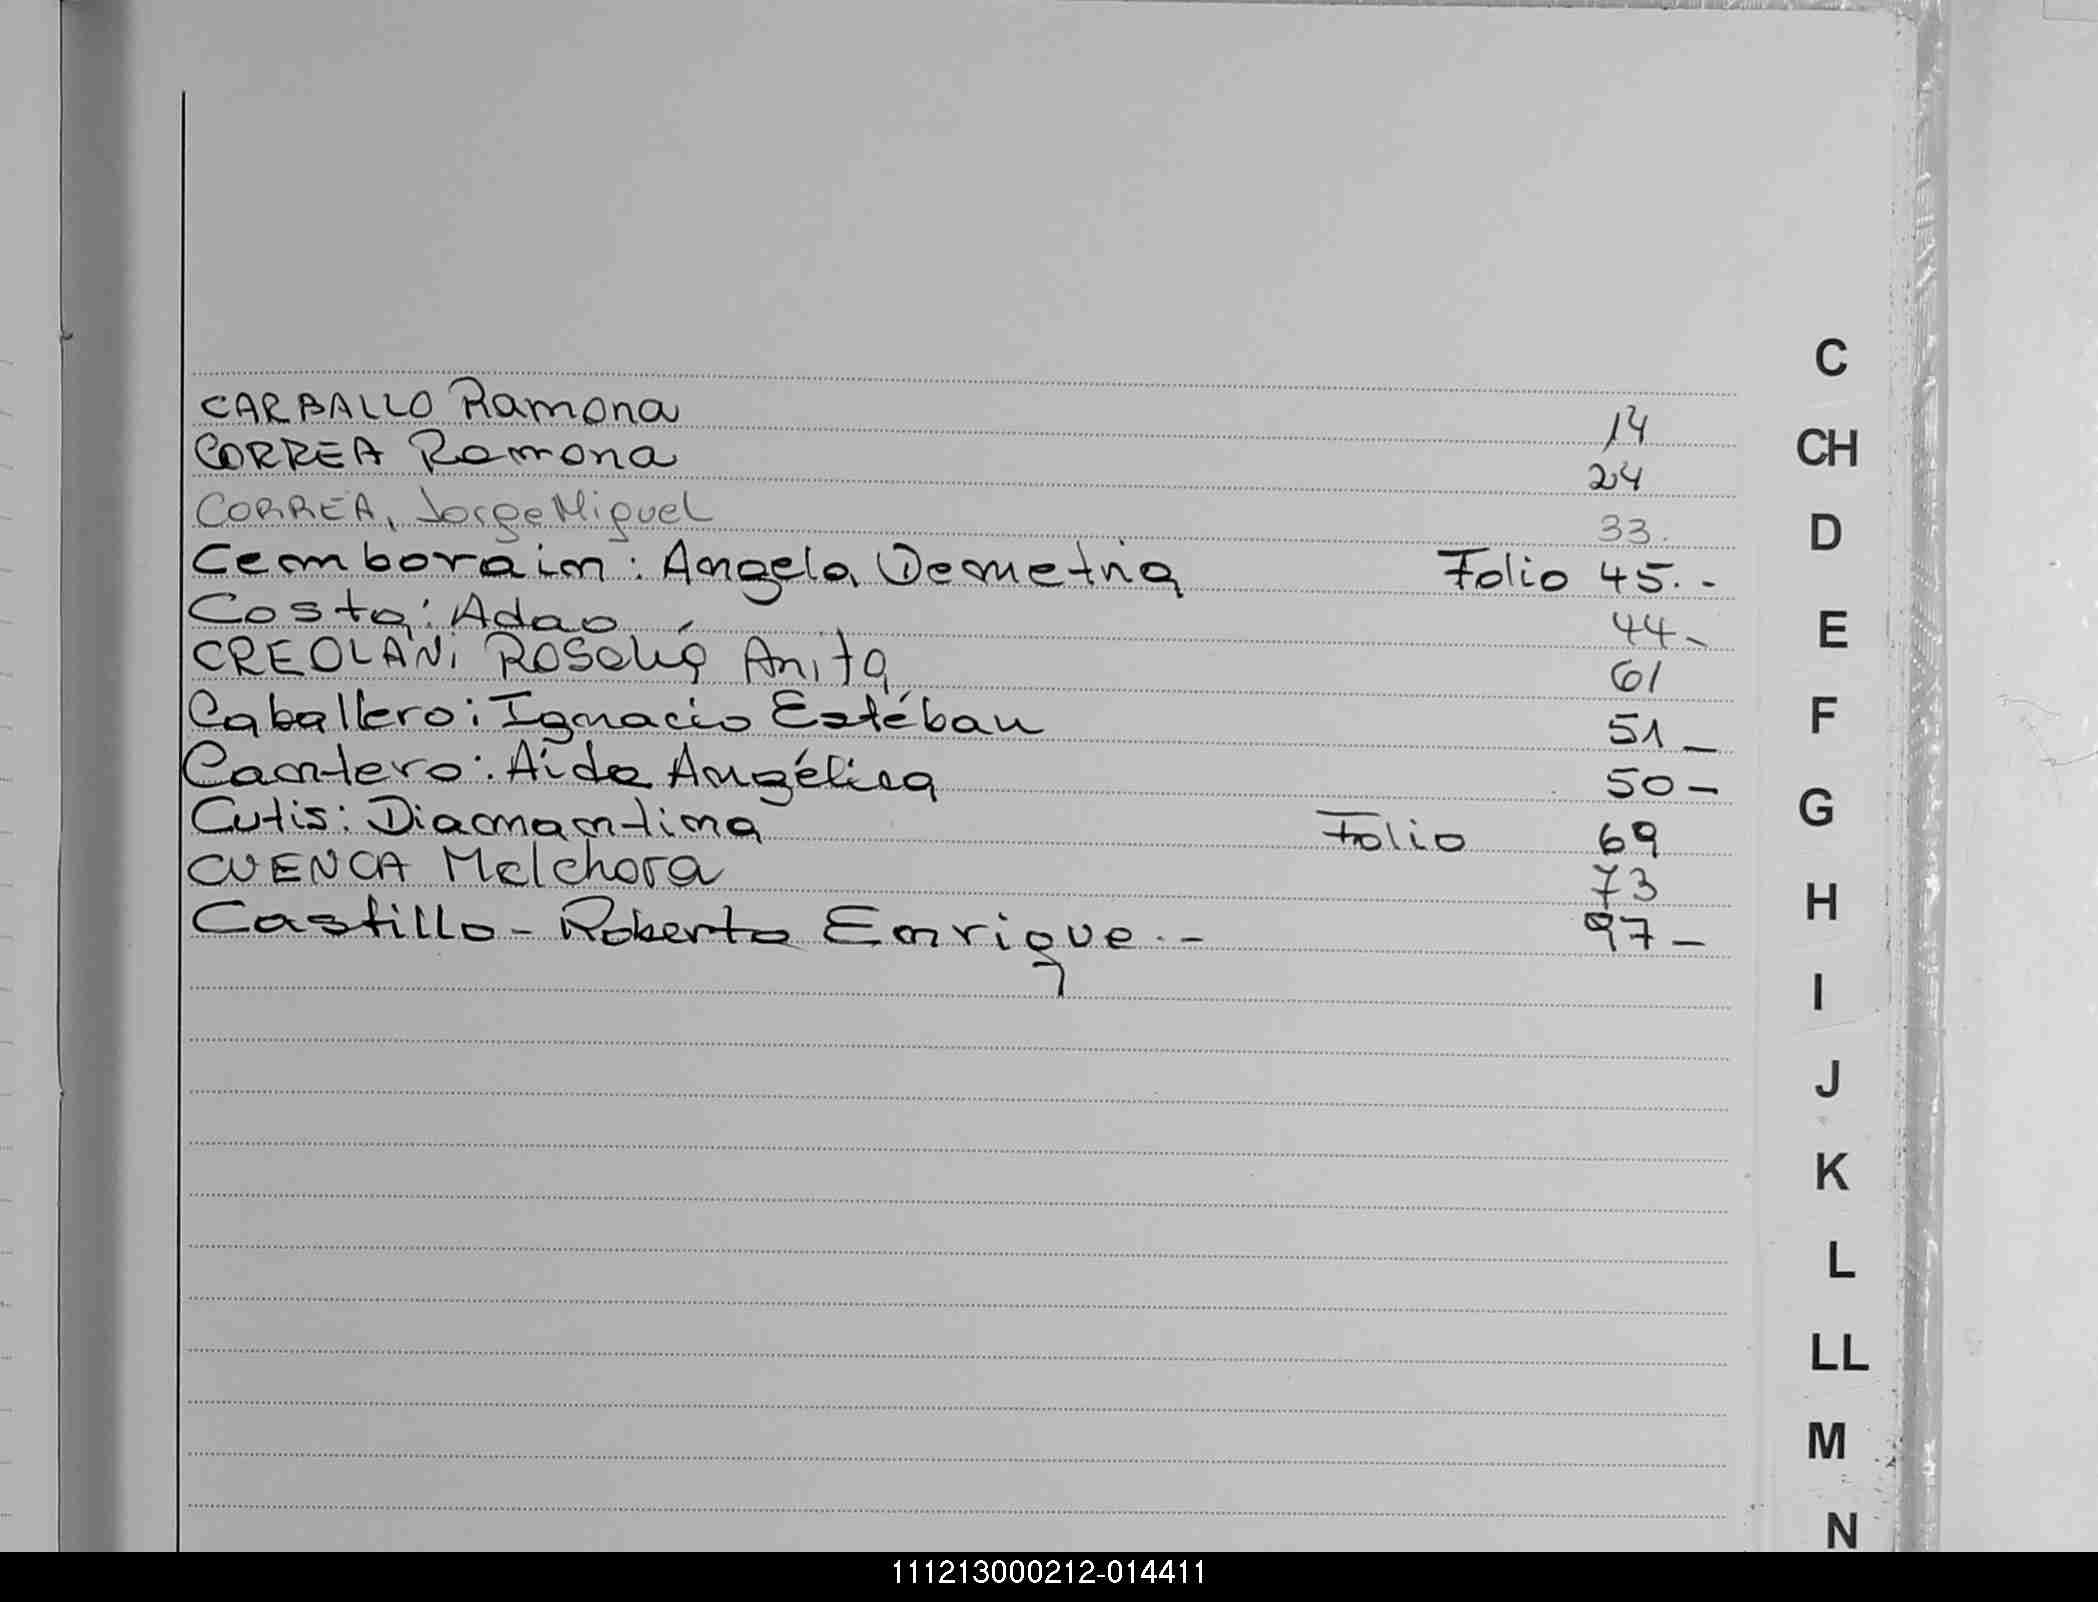 C
CARBALLO Ramona 14
CH
CORREA Ramona 24
CORREA, Jorge Miguel 33.
D
Cemborain: Angela Demetria Folio 45.-
Costa: Adao 44-
E
CREOLANi ROSALíA Anita 61
Caballero: Ignacio Estéban 51-
F
Cantero: Aída Angélica 50-
G
Cutis: Diamantina Folio 69
CUENCA Melchora 73
H
Castillo - Roberto Enrique.- 97-
I
J
K
L
LL
M
N
111213000212-014411